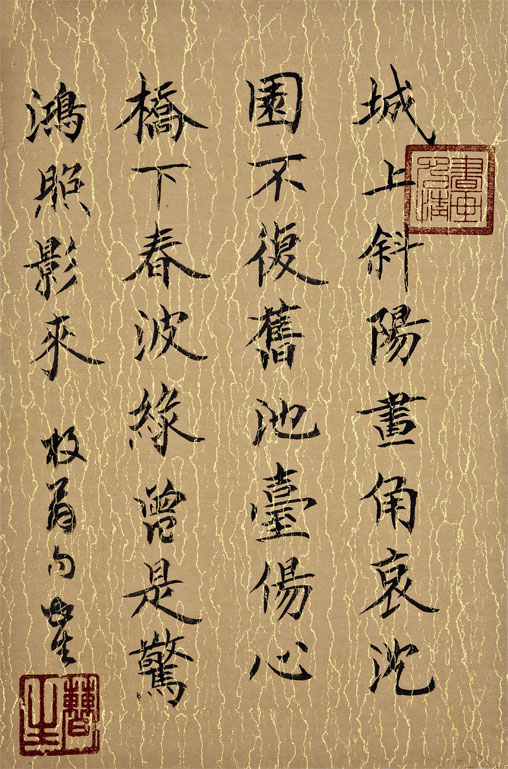 城上斜陽畫角哀沈
園不復舊池臺傷心
橋下春波綠曾是驚
鴻照影來 放翁句